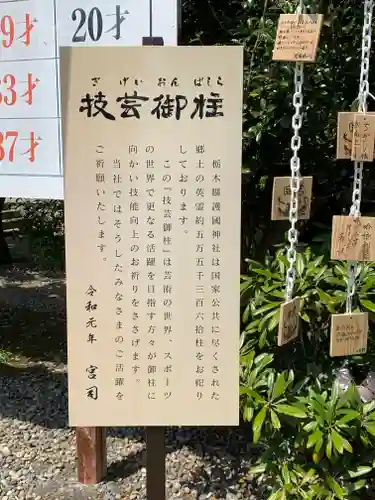 技 20才
9才
33才
37才
ぎげいおんばしら
技芸御柱
栃木縣護國神社は国家公共に尽くされた
郷土の英霊約五万五千三百六拾柱をお祀り
しております。
この『技芸御柱』は芸術の世界、スポーツ
の世界で更なる活躍を目指す方々が御柱に
向かい技能向上のお祈りをささげます。
当社ではそうしたみなさまのご活躍を
ご祈願いたします。
令和元年 宮司